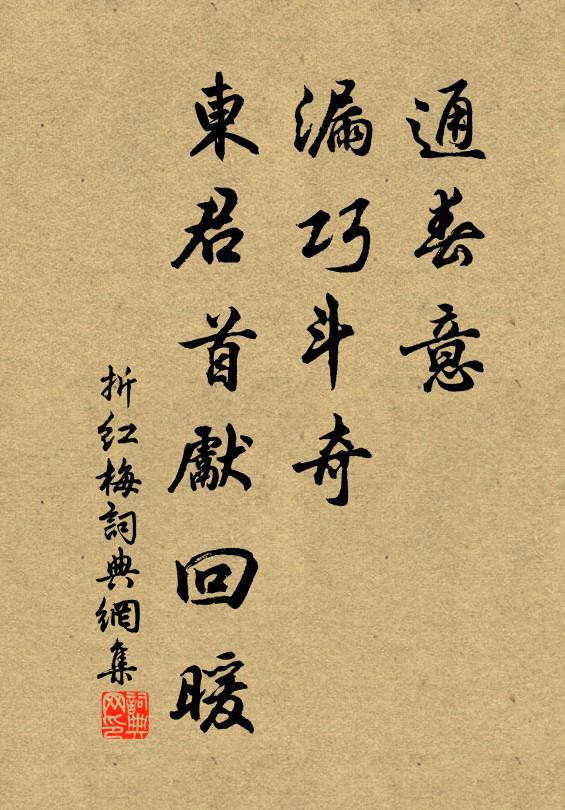 通春意
漏巧斗奇
東君首獻回暖
折紅梅詞典網集
詞典
网印